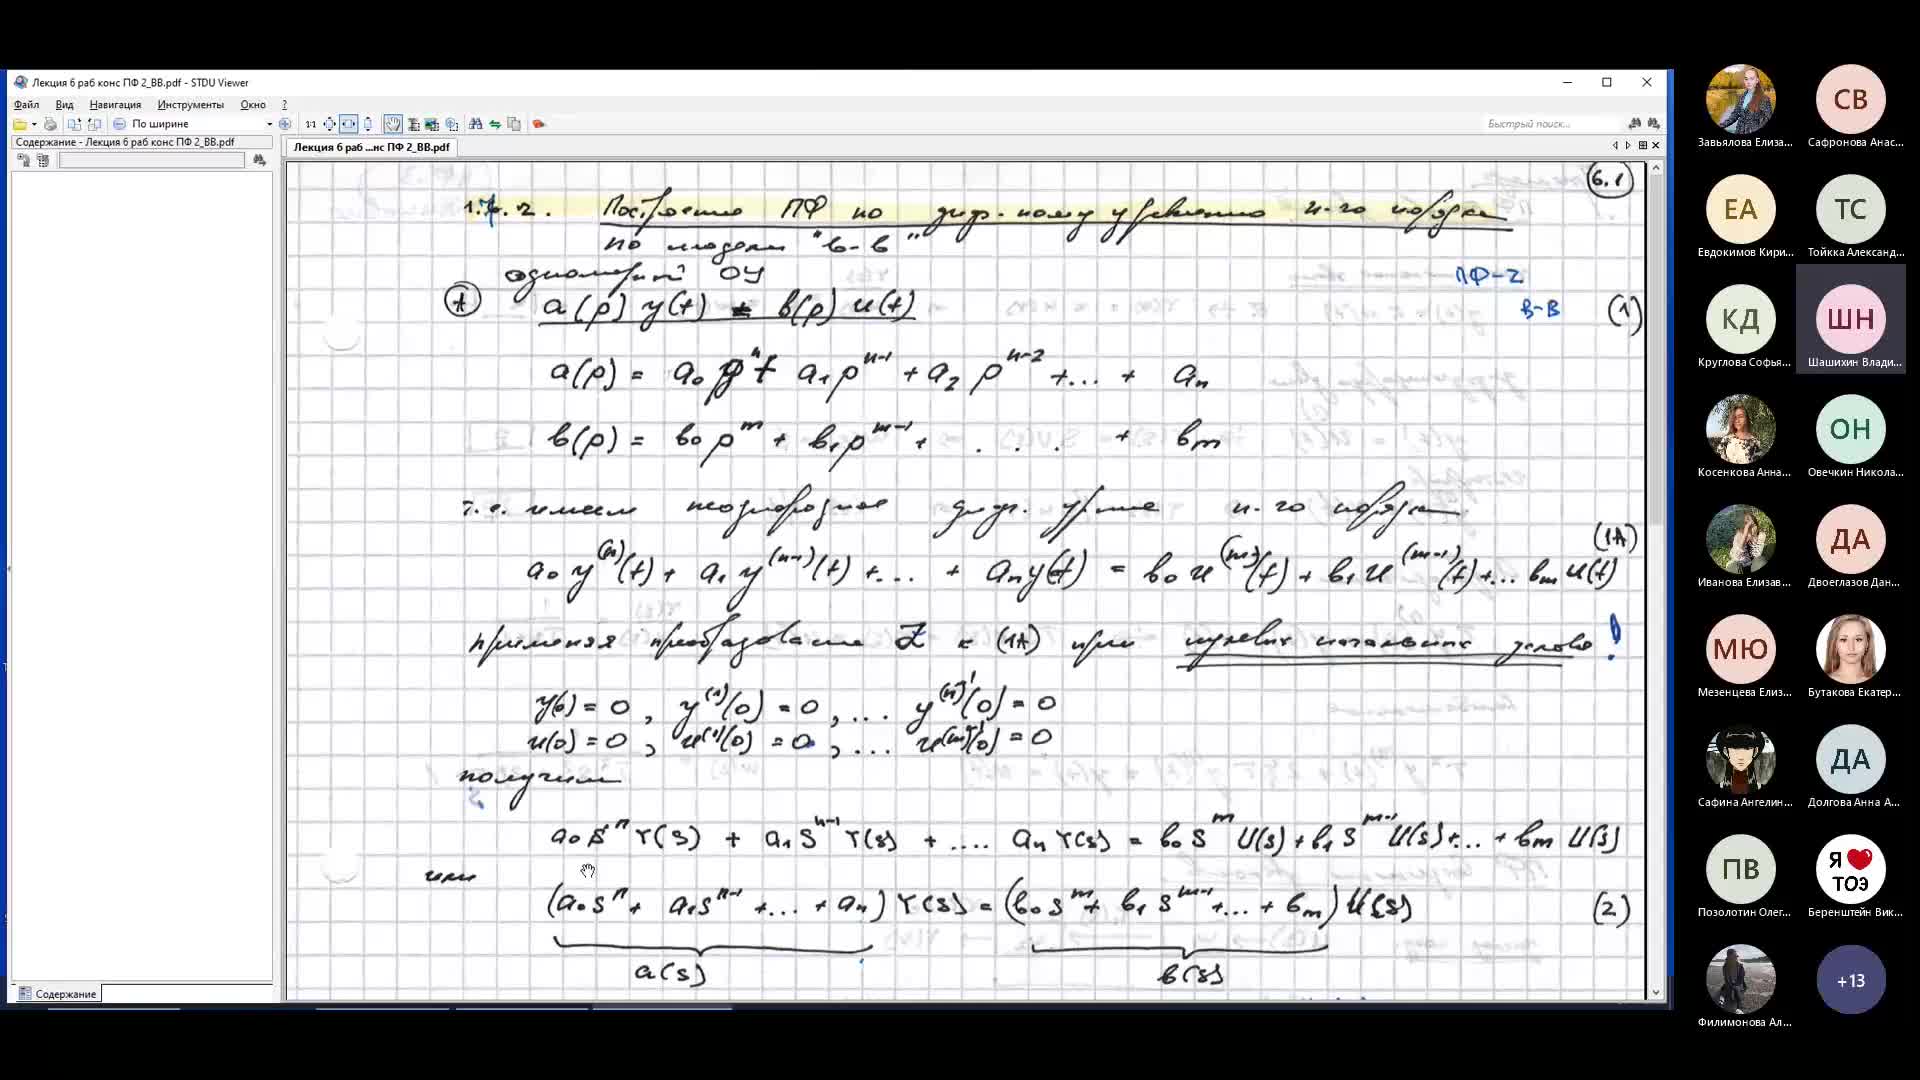 Лекция 6 раб конс ПФ 2_ВВ.pdf - STDU Viewer
Файл Вид Навигация Инструменты Окно ?
По ширине
1:1
Быстрый поиск...
Содержание - Лекция 6 раб конс ПФ 2_ВВ.pdf
Лекция 6 раб ...нс ПФ 2_ВВ.pdf
6.1
1.7.2. Построение ПФ по дифф-ному уравнению n-го порядка
по модели "в-в"
одномерный ОУ
ПФ-2
В-В
a(p) y(t) = b(p) u(t) (1)
a(p) = a0 p^n + a1 p^{n-1} + a2 p^{n-2} + ... + an
b(p) = b0 p^m + b1 p^{m-1} + . . . + bm
т.е. имеем неоднородное дифф. ур-ние n-го порядка
(1A)
a0 y^{(n)}(t) + a1 y^{(n-1)}(t) + ... + an y(t) = b0 u^{(m)}(t) + b1 u^{(m-1)}(t) + ... bm u(t)
применяя преобразование L к (1A) при нулевых начальных условиях !
y(0) = 0 , y^{(1)}(0) = 0 , ... y^{(n-1)}(0) = 0
u(0) = 0 , u^{(1)}(0) = 0 , ... u^{(m-1)}(0) = 0
получим
a0 s^n Y(s) + a1 s^{n-1} Y(s) + .... an Y(s) = b0 s^m U(s) + b1 s^{m-1} U(s) + ... + bm U(s)
или
(a0 s^n + a1 s^{n-1} + ... + an) Y(s) = (b0 s^m + b1 s^{m-1} + ... + bm) U(s) (2)
a(s) b(s)
Содержание
СВ
Завьялова Елиза... Сафронова Анас...
ЕА ТС
Евдокимов Кири... Тойкка Александ...
КД ШН
Круглова Софья... Шашихин Влади...
ОН
Косенкова Анна... Овечкин Никола...
ДА
Иванова Елизав... Двоеглазов Дан...
МЮ
Мезенцева Елиз... Бутакова Екатер...
ДА
Сафина Ангелин... Долгова Анна А...
ПВ Я ❤ ТОЭ
Позолотин Олег... Беренштейн Вик...
+13
Филимонова Ал...